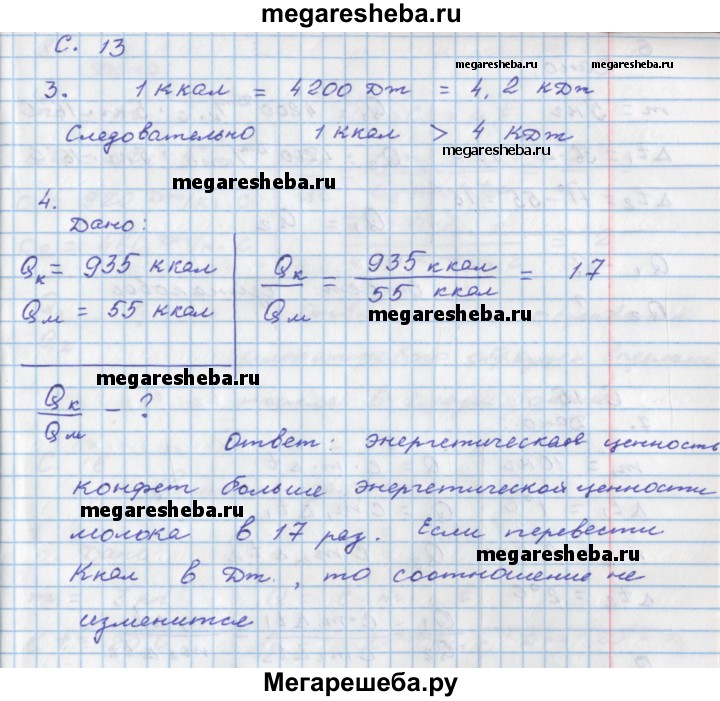 megaresheba.ru
с. 13
megaresheba.ru
3. 1 ккал = 4200 Дж = 4,2 кДж
Следовательно 1 ккал > 4 КДж
megaresheba.ru
megaresheba.ru
4.
Дано:
Qк = 935 ккал
Qм = 55 ккал
Qк/Qм = 935 ккал/55 ккал = 17
megaresheba.ru
megaresheba.ru
Qк/Qм - ?
Ответ: энергетическая ценность
конфет больше энергетической ценности
megaresheba.ru
молока в 17 раз. Если перевести
megaresheba.ru
Ккал в Дж., то соотношение не
изменится
Мегарешеба.ру